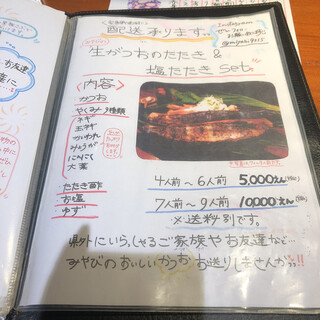 配送承ります。
生がつおのたたき &
塩たたき set。
〈内容〉
かつお
やくみ 7種類
ネギ
玉ネギ
かいわれ
みょうが
にんにく
大葉
・たたき酢
・お塩
・ゆず
4人前〜6人前 5,000えん
7人前〜9人前 10,000えん
※送料別です。
県外にいらっしゃるご家族やお友達など…
みやびのおいしいかつお お送りしませんか!!
お友達
に